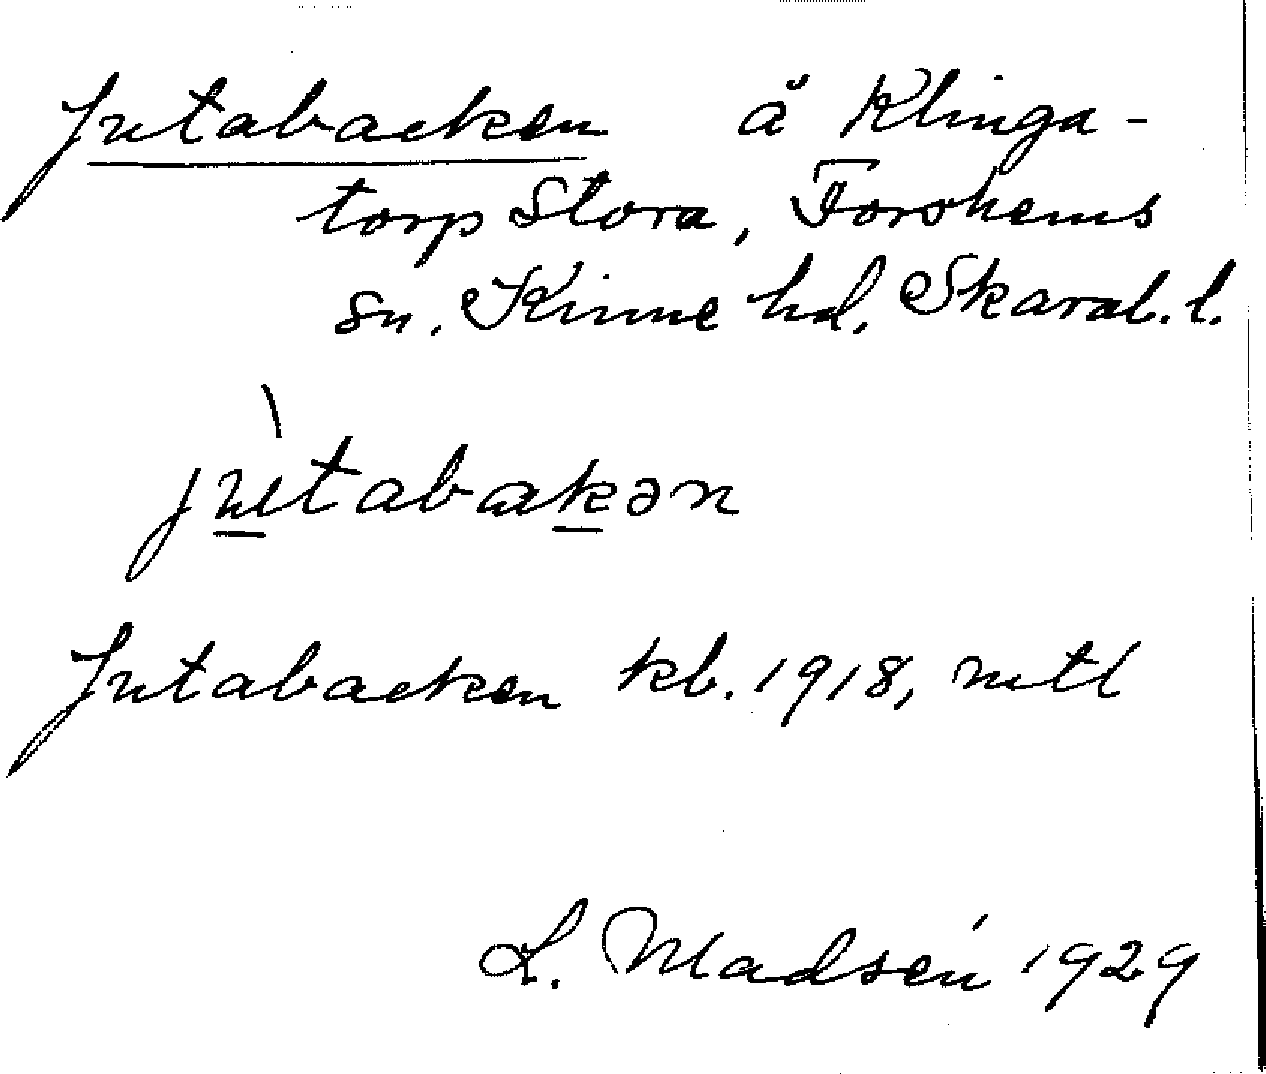 Jutabacken å Klinga-
torp Stora, Forshems
sn. Kinne hd, Skarab. l.
jutabakən
Jutabacken kb. 1918,
L. Madsén 1929